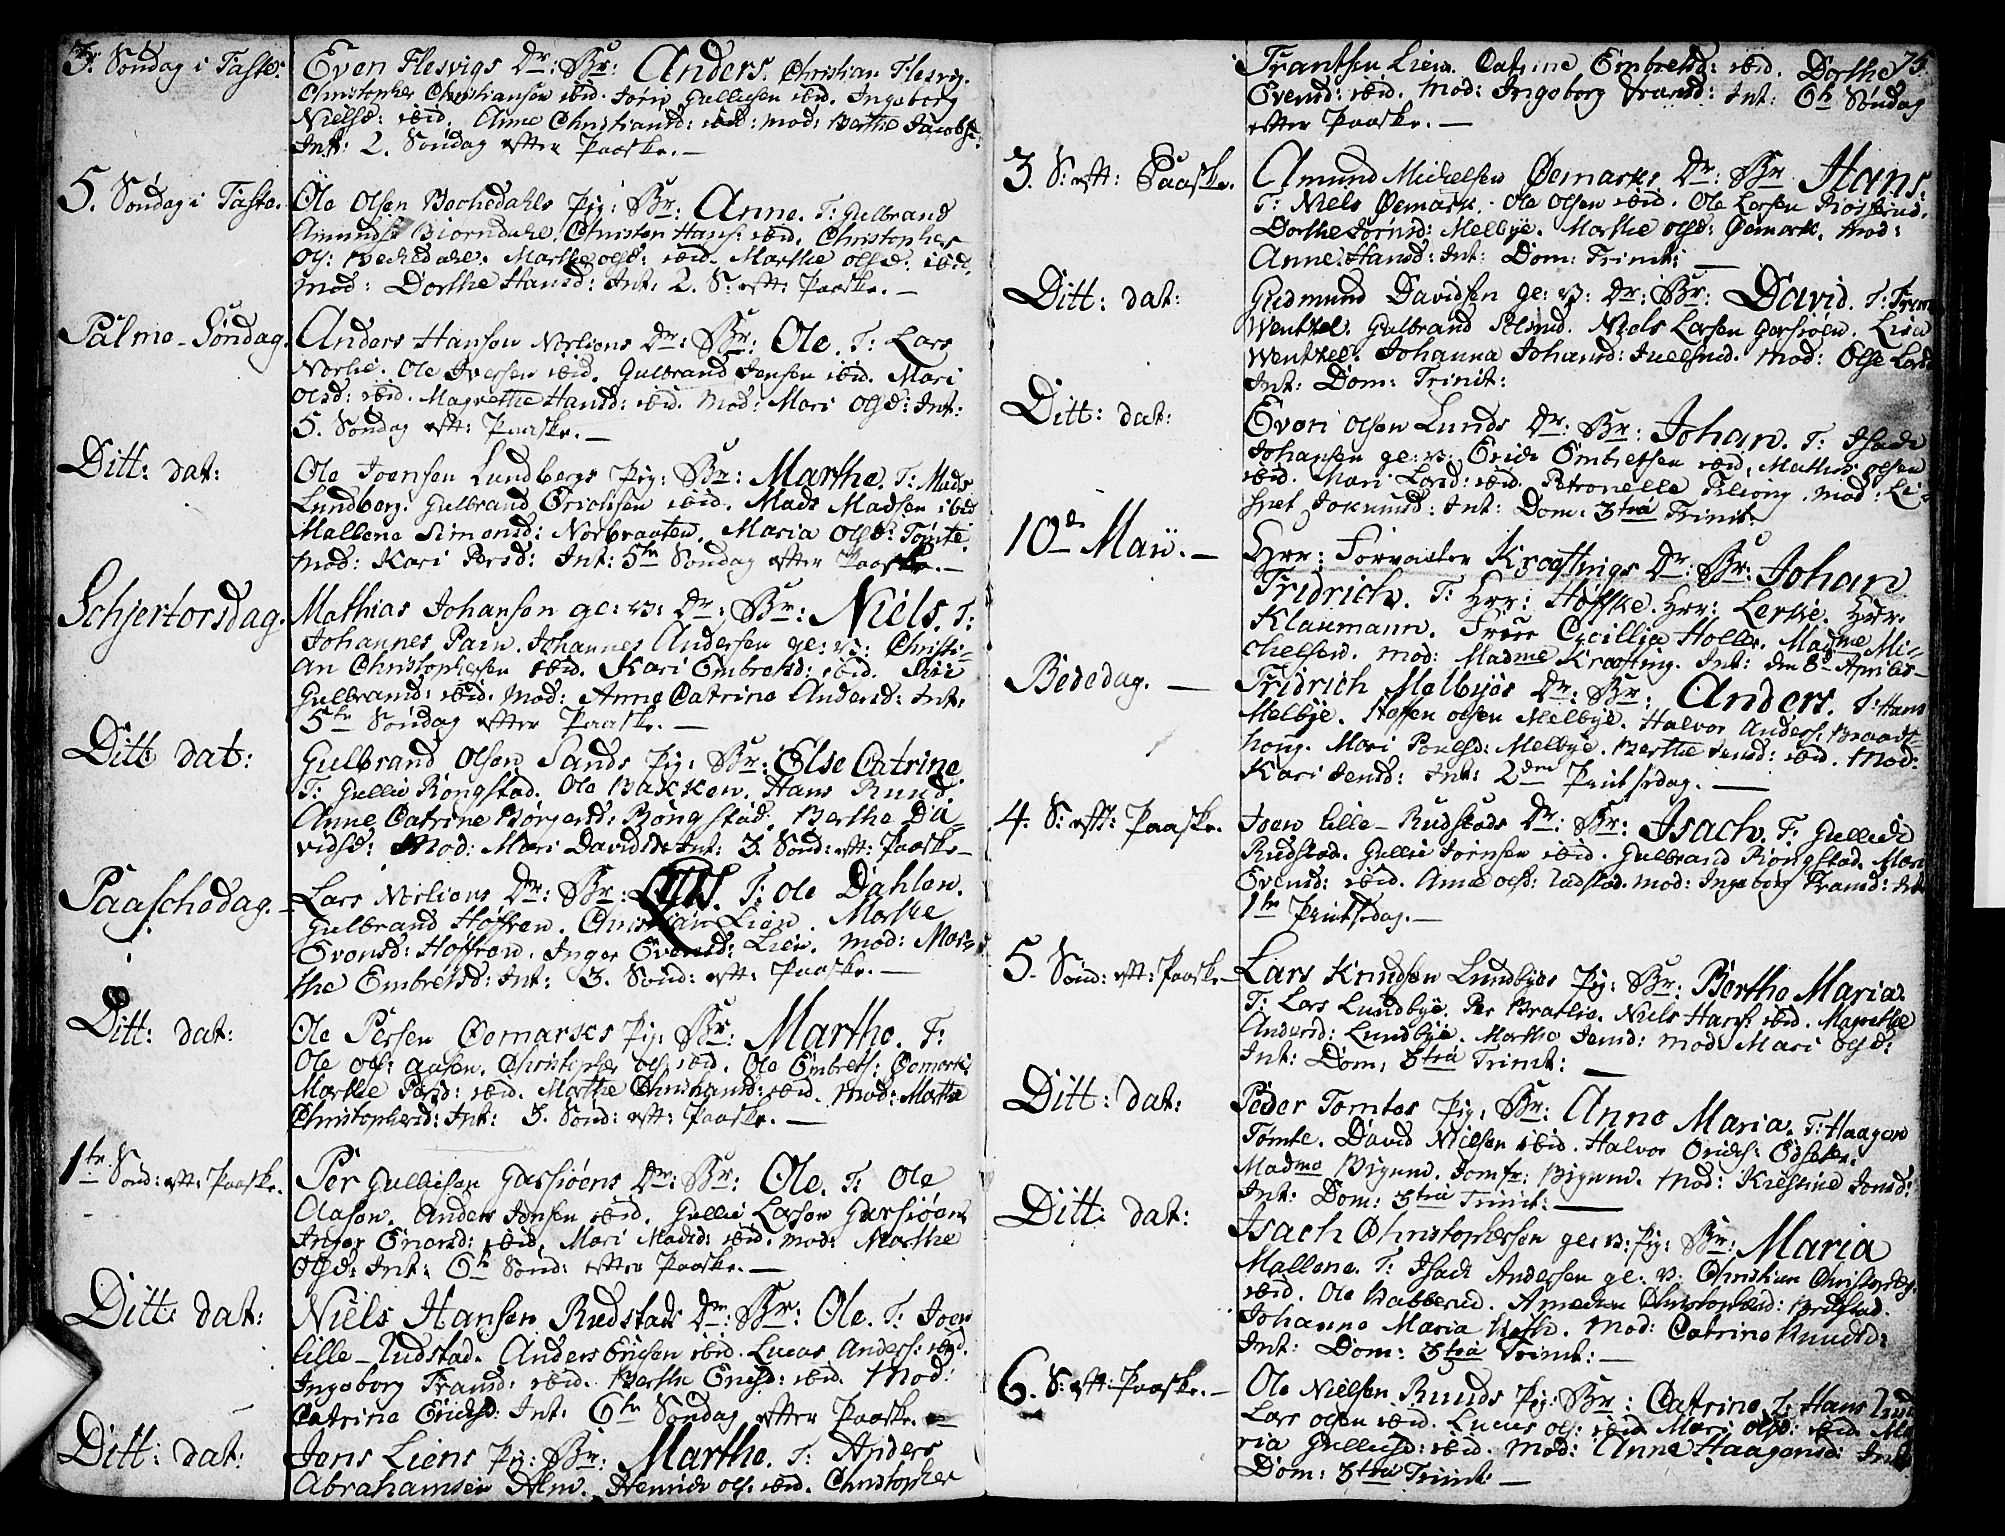 3. Søndag i Faste.
Even Flesvigs Dr: Br: Anders. Christian Flesvig.
Christopher Christiansen ibid. Jøris Gullicsen ibid. Ingeborg
Nielsd: ibid. Anne Christiansd: ibid: Mod: Berthe Jacobsd:
Int: 2. Søndag efter Paaske.—
5. Søndag i Faste.
Ole Olsen Bechedahls Pig: Br: Anne. F: Gulbrand
Amundsr Biørndahl. Christen Hans: ibid. Christopher
Ols: Bechedahl. Marthe olsd: ibid. Marthe olsd: ibid.
Mod: Dorthe Hansd: Int: 2. S: eft: Paaske.—
Palme-Søndag.
Anders Hansen Norliens Dr: Br: Ole. F: Lars
Norlie. Ole Iversen ibid. Gulbrand Jensen ibid. Mari
olsd: ibid. Magrethe Hansd: ibid. Mod: Mari Olsd: Int:
5. Søndag eft: Paaske.—
Ditt: dat:
Ole Joensen Lundbergs Pig: Br: Marthe. F: Mads
Lundberg. Gulbrand Erichsen ibid. Mads Madsen ibid
Mallene Simensd: Norbraaten. Maria Olsd: Tømte.
Mod: Kari Persd: Int: 5te Søndag efter Paaske.—
Schjertorsdag.
Mathias Johansen ge: v: Dr: Br: Niels. F:
Johannes Pain. Johannes Andersen ge: v: Christi-
an Christophersen ibid. Kari Embretsd: ibid. Siri
Gulbrandsd: ibid. Mod: Anne Catrine Andersd: Int:
5te Søndag efter Paaske.—
Ditt dat:
Gulbrand Olsen Sands Pig: Br: Else Catrine
F: Gullic Rongstad. Ole Bakken. Hans Rund.
Anne Catrine Børgersd: Rongstad. Berthe Da-
vidsd: Mod: Mari Davidsd: Int: 3. Sønd: eft: Paaske—
Paaschedag.—
Lars Norliens Dr: Br: F: Ole Dahlen.
Gulbrand Hoffren. Christian Lien. Marthe
Evensd: Hoffren. Inger Evensd: Lien. Mod: Mar-
the Embretsd: Int: 3. Sønd: eft: Paaske.—
Ditt: dat:
Ole Persen Øemarks Pig: Br: Marthe. F:
Ole ols: Aasen. Christopher ols: ibid. Ole Embrets: Øemark.
Marthe Persd: ibid. Marthe Christiansd: ibid. Mod: Marthe
Christophersd: Int: 3. Sønd: eft: Paaske.—
1te Sønd: eft: Paaske.
Per Gullicsen Garsiøens Dr: Br: Ole. F: Ole
Aasen. Anders Jensen ibid. Gullic Larsen Garsiøen
Inger Enersd: ibid. Mari Madsd: ibid. Mod: Marthe
Olsd: Int: 6te Sønd: efter Paaske.—
Ditt: dat:
Niels Hansen Rudstads Dr: Br: Ole. F: Joen
lille-Rudstad. Anders Erichsen ibid. Lucas Anders: ibid.
Ingeborg Fransd: ibid. Berthe Ericsd: ibid. Mod:
Catrine Erichsd: Int: 6te Søndag efter Paaske.—
Ditt: dat:
Jens Liens Pig: Br: Marthe. F: Anders
Abrahamsen Alm. Henrich ols: ibid. Christopher
73.
Frantsen Lien. Catrine Embretsd: ibid. Dorthe
Evensd: ibid. Mod: Ingeborg Fransd: Int: 6te Søndag
efter Paaske.—
3. S: eft: Paaske.
Amund Michelsen Øemarks Dr: Br: Hans.
F: Niels Øemark. Ole Olsen ibid. Ole Larsen
Dorthe Jørnsd: Melbye. Marthe olsd: Øemark. Mod:
Anne Hansd: Int: Dom: Trinit:—
Ditt: dat:
Gudmund Davidsen ge: v: Dr: Br: David. F:
Wentzel. Gulbrand Niels Larsen Garsiøen. Lisa
Wentzel. Johanna Johansd: Juelsrud. Mod: Olse Larsd
Int: Dom: Trinit:
Ditt: dat:
Even Olsen Lunds Dr: Br: Johan. F: Isach
Johansen ge: v: Erich Embretsen ibid. Mathis olsen
ibid. Mari Larsd: ibid. Petronelle Mod: Li-
sbet Int: Dom: 3tia Trinit:
10de Maii.—
Hrr: Forvalter Krøftings Dr: Br: Johan
Fridrich. F: Hrr: Høffke. Hrr: Lerkie. Hrr:
Klaumann. Frue Cecillia Holler. Madme Mi-
chelsen. Mod: Madme Krøfting. Int: den 8de Aprilis—
Bededag.—
Fridrich Melbyes Dr: Br: Anders. F: Hans
Melbye. Steffen olsen Melbye. Halvor Anders: Braat-
hong. Mari Povelsd: Melbye. Berthe Jensd: ibid. Mod:
Kari Jensd: Int: 2den Pintsedag.—
4. S: eft: Paaske.
Joen lille-Rudstads Dr: Br: Isach. F: Gullich
Rudstad. Gullic Jørnsen ibid. Gulbrand Rongstad. Mari
Evensd: ibid. Anne olsd: Rudstad. Mod: Ingeborg Fransd: Int
1te Pintsedag.—
5. Sønd: eft: Paaske—
Lars Knudsen Lundbyes Pig: Br: Berthe Maria.
F: Lars Lundbye. Per Bratlie. Niels Hans: ibid. Magrethe
Andersd: Lundbye. Marthe Jensd: Mod: Mari Olsd:
Int: Dom: 3tia Trinit:—
Ditt: dat:
Peder Tomtes Pig: Br: Anne Maria. F: Haagen
Tømte. David Nielsen ibid. Halvor Erichs:
Madme Bigum. Jomfr: Bigum. Mod: Kirstine Jensd:
Int: Dom: 3tia Trinit:—
Ditt: dat:
Isach Christophersen ge: v: Pig: Br: Maria
Mallene. F: Isach Andersen ge: v: Christian Christophs:
ibid. Ole Christophersd: Rudstad.
Johanne Maria Mod: Catrine Knudsd:
Int: Dom: 3tia Trinit:—
6. S: eft: Paaske.—
Ole Nielsen Runds Pig: Br: Catrine. F: Hans Rund
Lars olsen ibid. Lucas ols: ibid. Mari Olsd: ibid. Ma-
ria Gullicsd: ibid. Mod: Anne Haagensd: Int:
Dom: 3tia Trinit:—